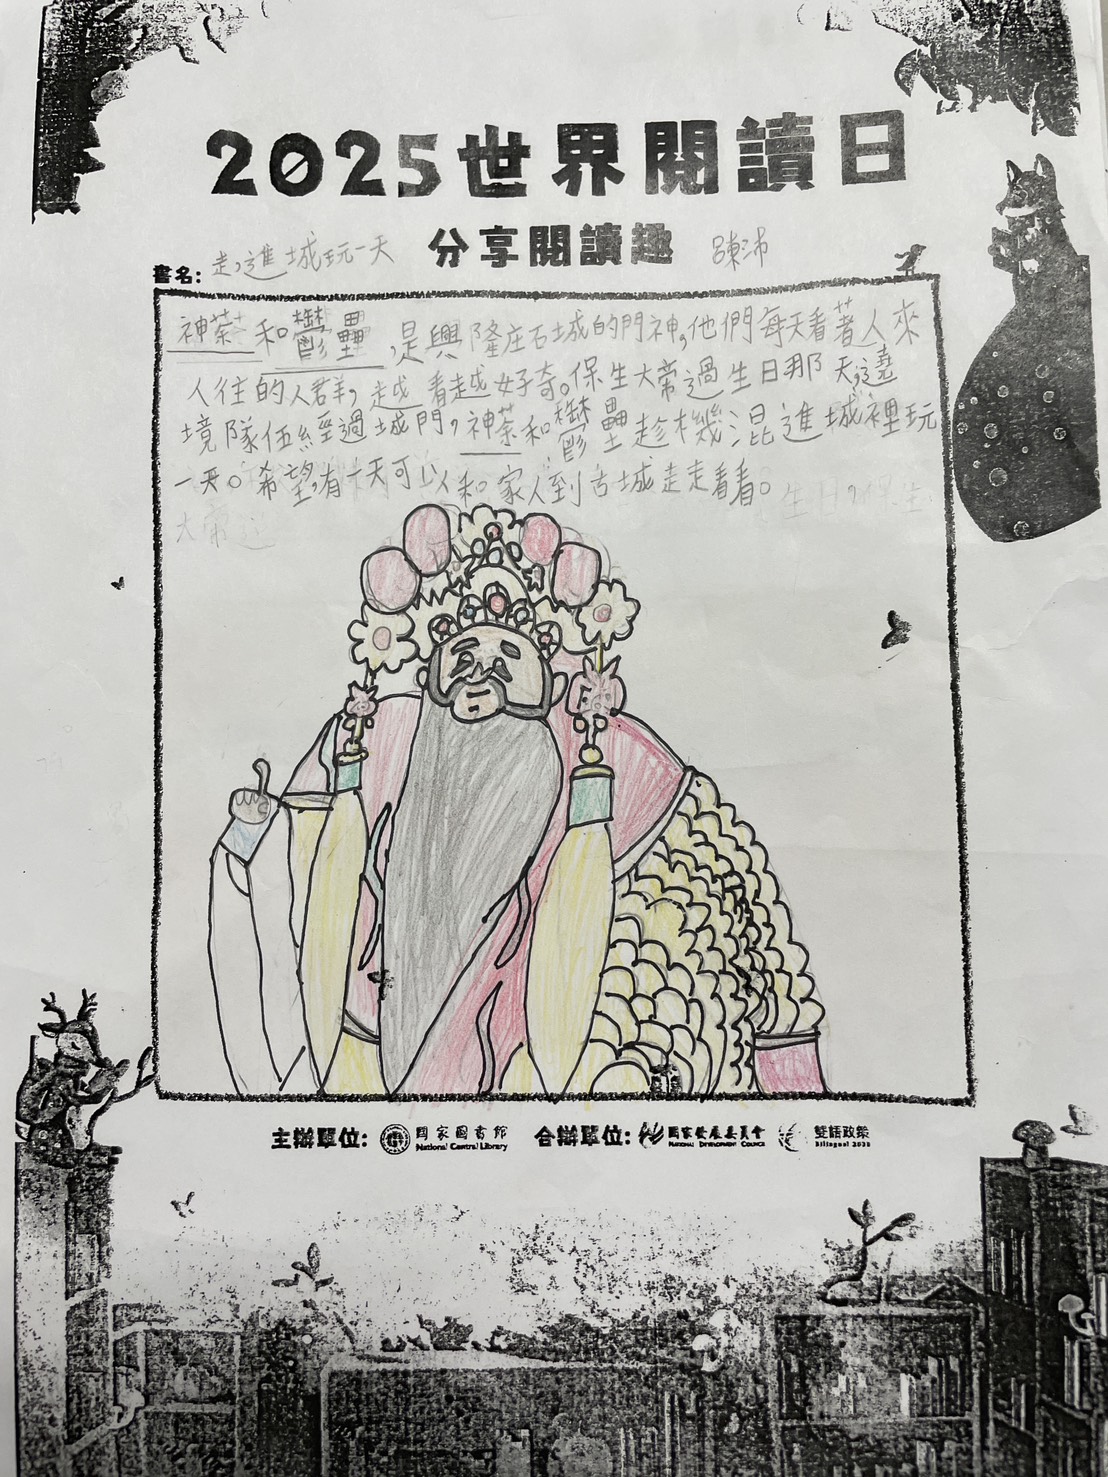 2025世界閱讀日
分享閱讀趣
書名：走，進城玩一天
神荼和鬱壘，是興隆庄石城的門神，他們每天看著人來
人往的人群，越看越好奇。保生大帝過生日那天，遶
境隊伍經過城門，神荼和鬱壘趁機混進城裡玩
一天。希望，有一天可以和家人到古城走走看看。
主辦單位：國家圖書館
National Central Library
合辦單位：國家發展委員會
National Development Council
雙語政策
Bilingual 2030